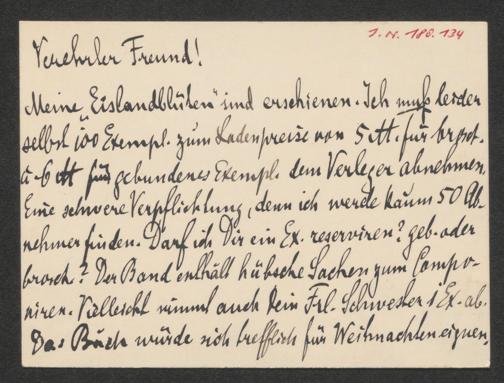 J. N. 186.134
Verehrter Freund!
Meine „Eislandblüten" sind erschienen. Ich muß leider
selbst 100 Exempl. zum Ladenpreise von 5 M. für brosch.
u. 6 M für gebundenes Exempl. dem Verleger abnehmen.
Eine schwere Verpflichtung, denn ich werde kaum 50 Ab-
nehmer finden. Darf ich Dir ein Ex. reserviren? geb. oder
brosch.? Der Band enthält hübsche Sachen zum Compo-
niren. Vielleicht nimmt auch Dein Frl. Schwester 1 Ex. ab.
Das Buch würde sich trefflich für Weihnachten eignen.